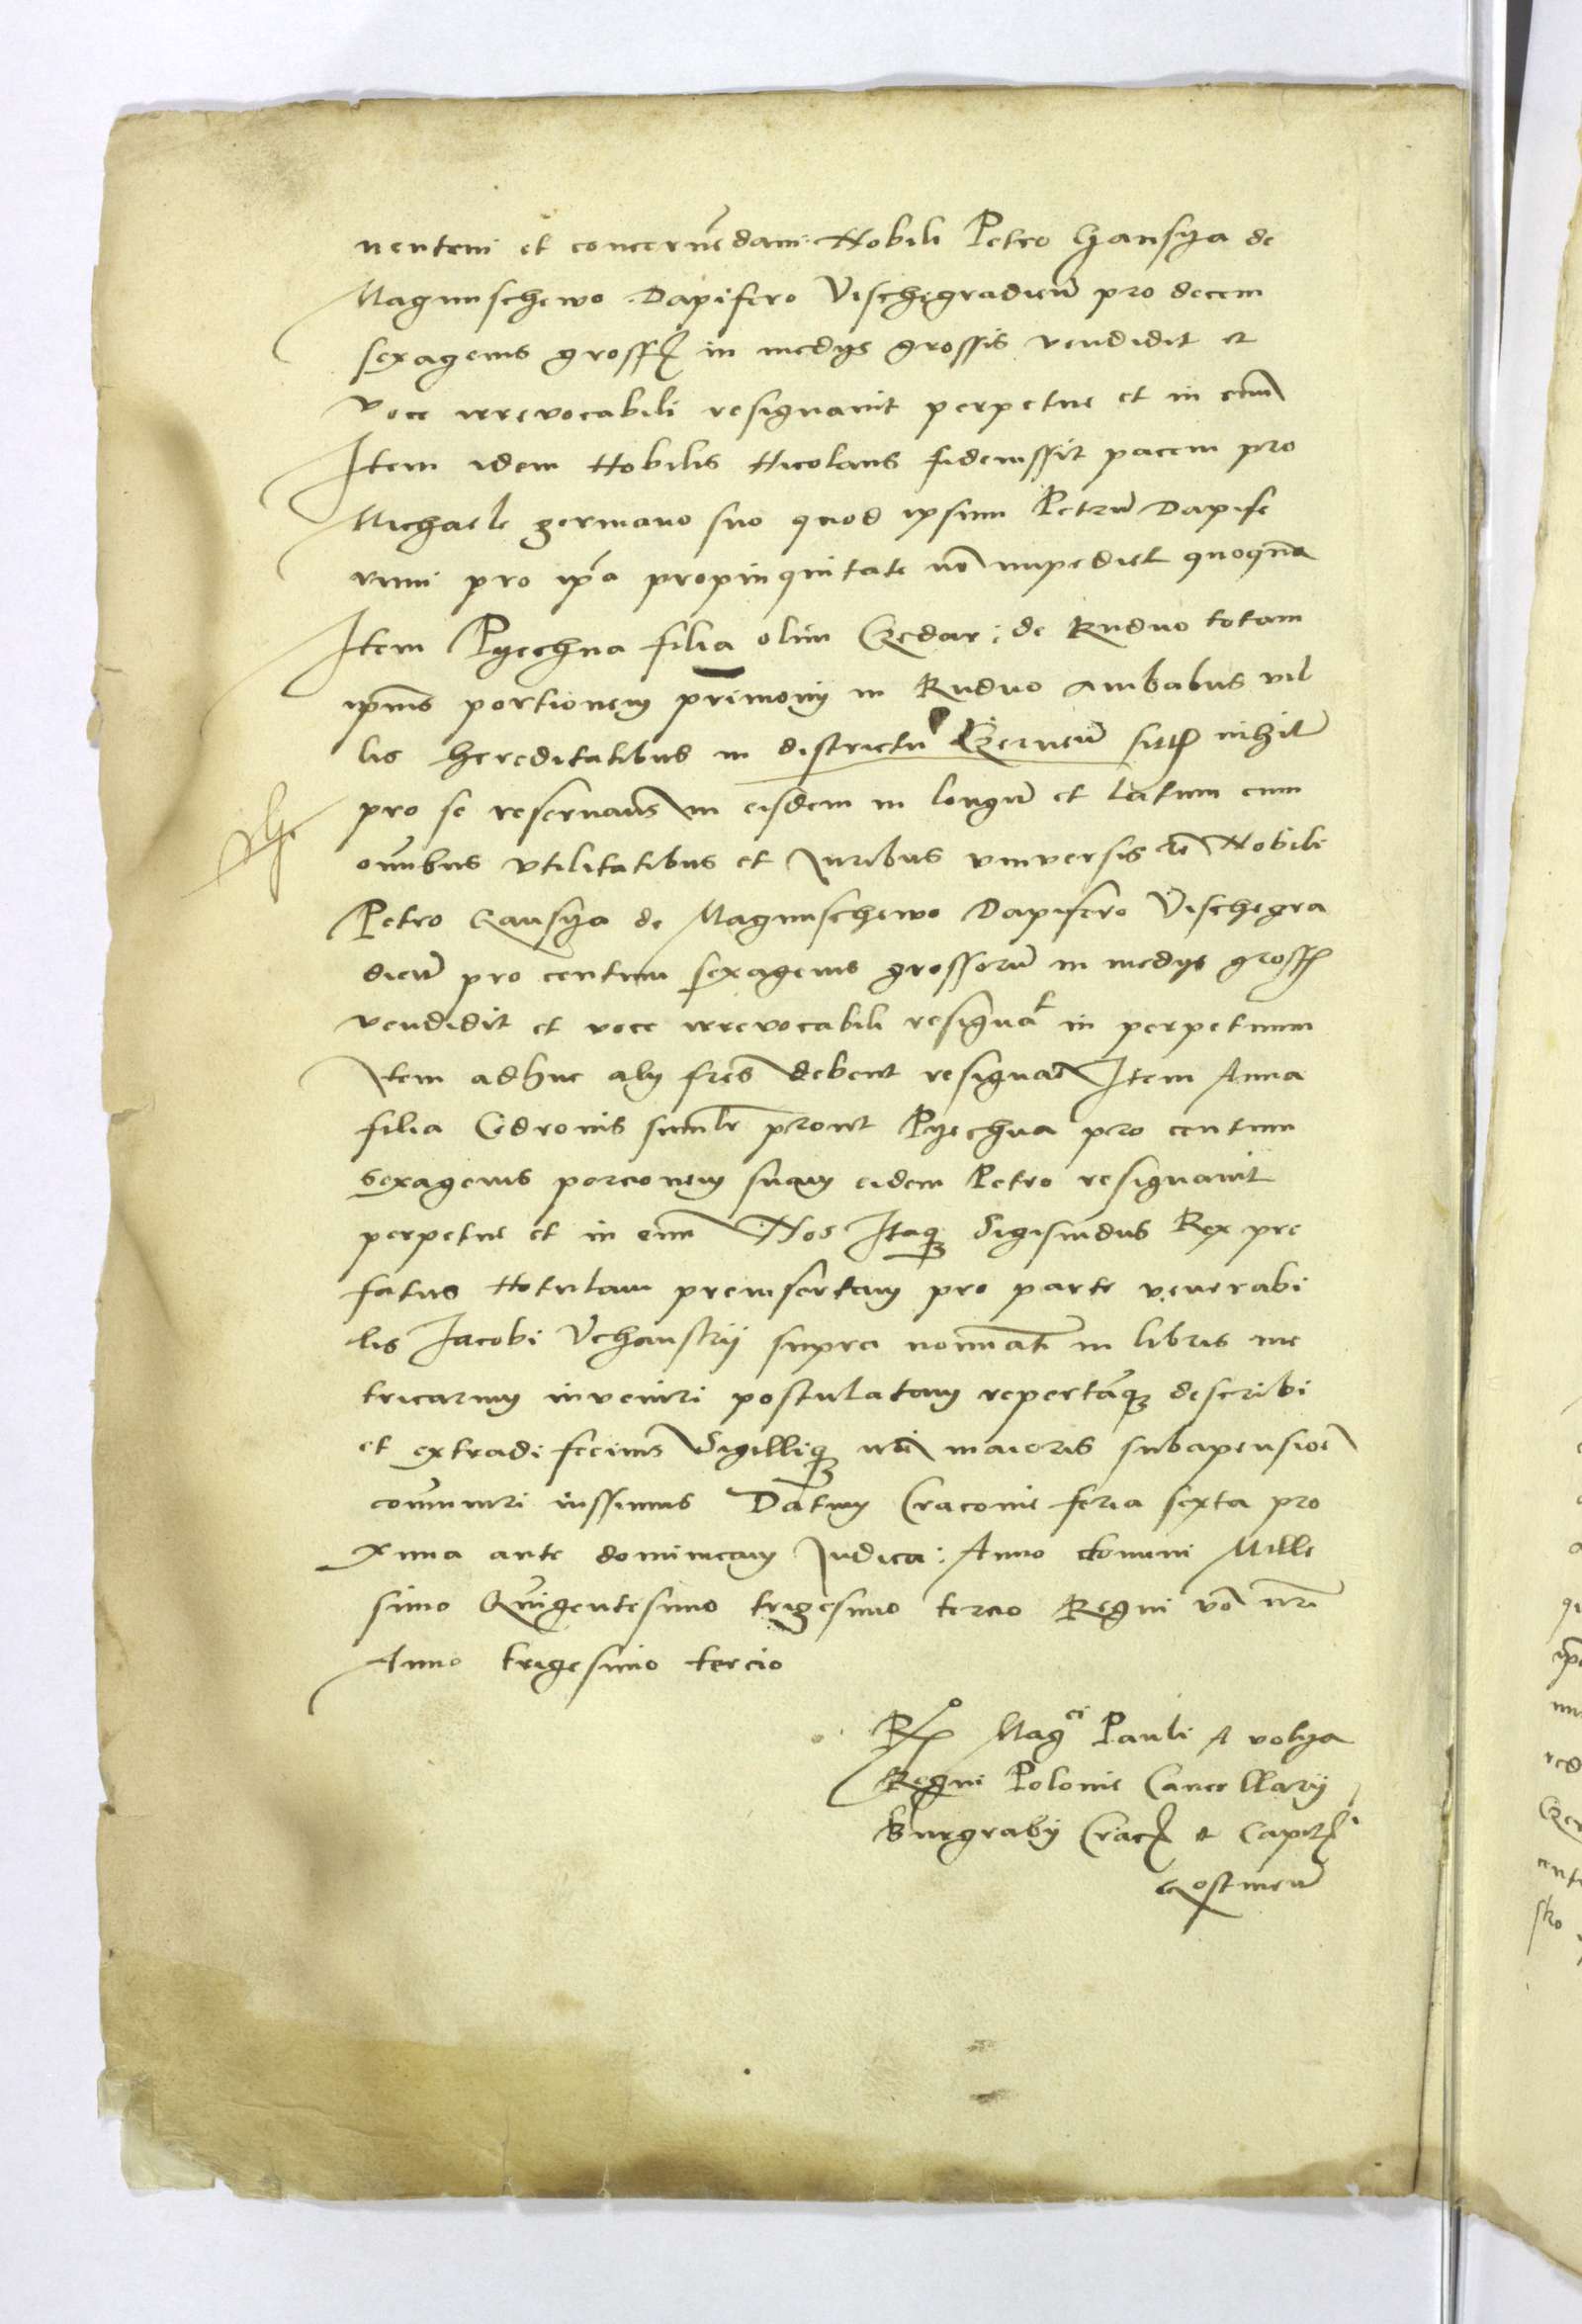 nentem et concernēdam Nobili Petro Gansya de
Magnuschewo Dapifero Vischegradieñ pro decem
sexagenis gross in medys grossis vendidit et
voce irrevocabili resignavit perpetue et in evū
Item idem Nobilis Nicolaus fideiussit pacem pro
Michaele germano suo quod ipsum Petrū Dapife
rum pro ip̄a propinquitate nō impediet quoquā
Item Pyechna filia olim Czedar: de Rudno totam
ip̄ius portionem p̄rimonij in Rudno ambabus vil
lis hereditatibus in districtu Czerneñ sitt nihil
pro se reservans in eisdem in longū et latum cum
om̄ibus vtilitatibus et Iuribus vniversis Nobili
Petro Gansya de Magnuschewo Dapifero Vischegra
dieñ pro centum sexagenis grossorū in medys gross
vendidit et voce irrevocabili resignat in perpetuum
Item adhuc alij fr̄es debent resignare Item Anna
filia Cedronis simlr prout Pyechna pro centum
sexagenis porcionem suam eidem Petro resignavit
perpetue et in evū Nos Itaq Sigismūdus Rex pre
fatus Notulam preinsertam pro parte venerabi
lis Jacobi Vchanskij supra nominati in libris me
tricarum inveniri postulatam repertāq describi
et extradi fecimus Sigilliq nr̄i maioris subapensiōe
com̄uniri iussimus Datum Cracovie feria sexta pro
xima ante dominicam Iudica: Anno domini Mille
simo Quīgentesimo trigesimo tercio Regni vō nr̄i
Anno trigesimo tercio
Ro Magci Pauli A volya
Regni Polonie Cancellarij
Burgrabij Crac et Capit
Gostineñ